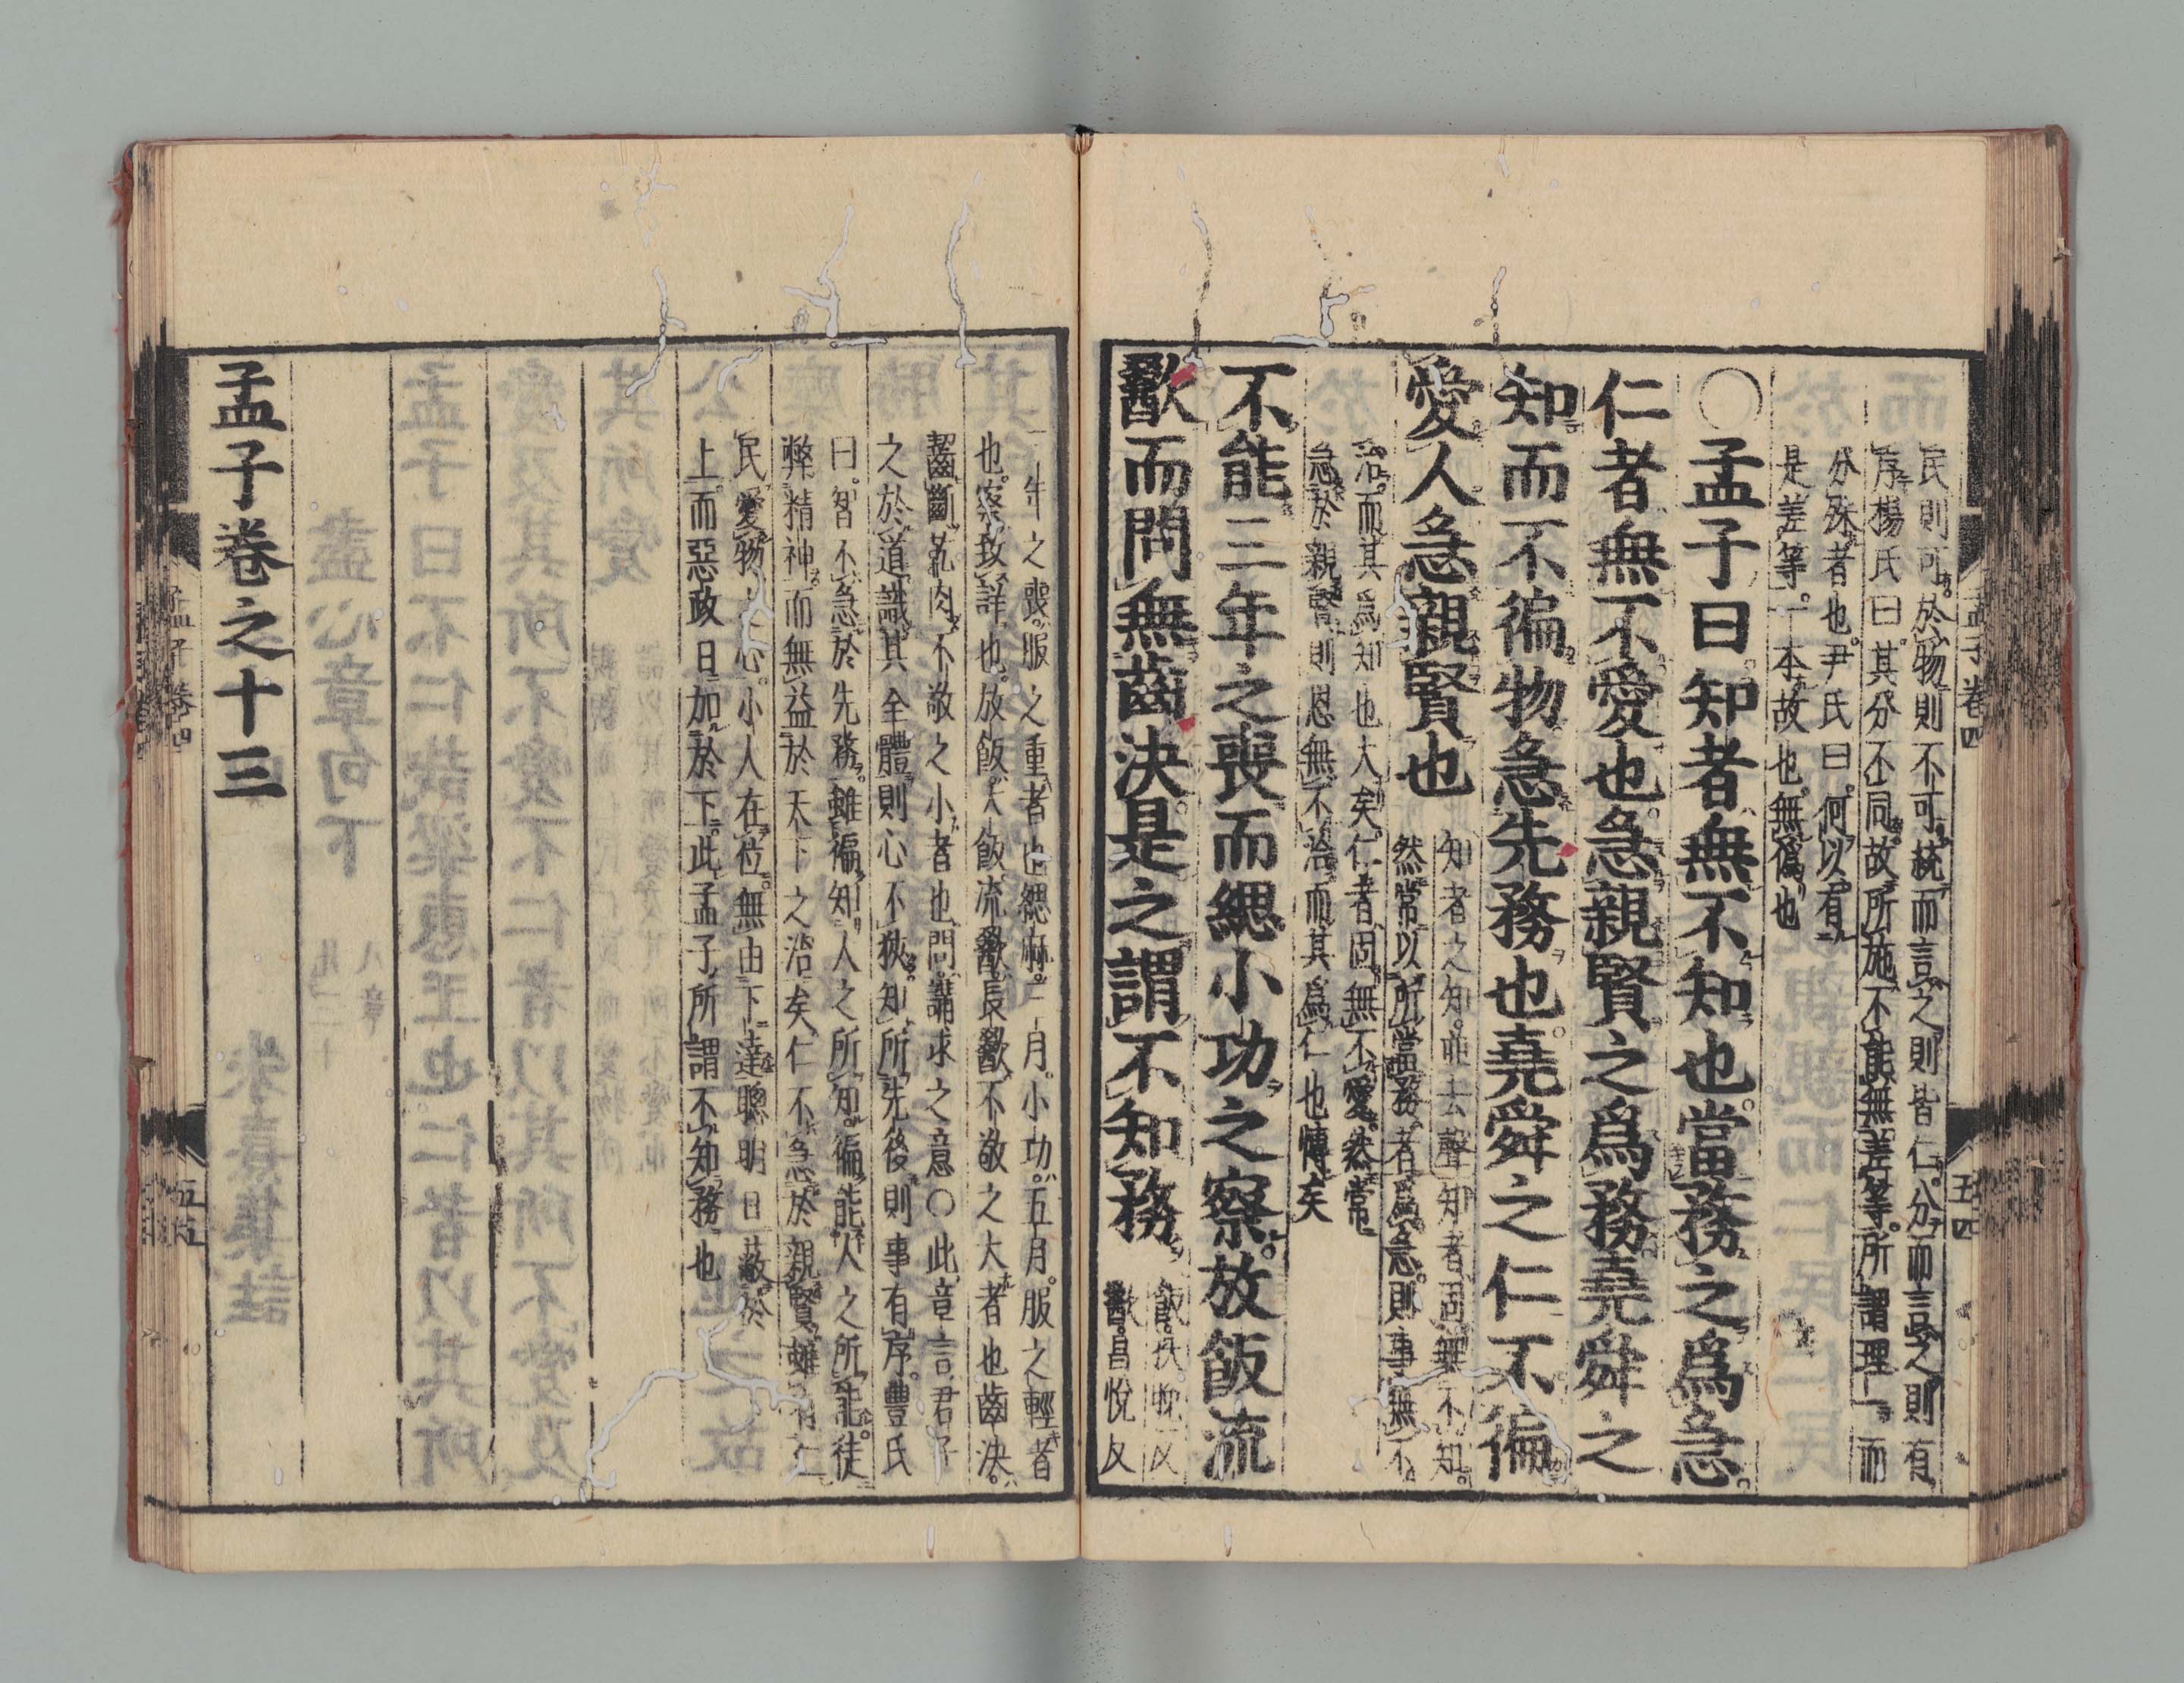 民則可於物則不可統而言之則皆仁分而言之則有
序楊氏曰其分不同故所施不能無差等所謂理一而
分殊者也尹氏曰何以有
是差等一本故也無僞也
○孟子曰知者無不知也當務之爲急
仁者無不愛也急親賢之爲務堯舜之
知而不徧物急先務也堯舜之仁不徧
愛人急親賢也
知者之知並去聲知者固無不知
然常以所當務者爲急則事無不
治而其爲知也大矣仁者固無不愛然常
急於親賢則恩無不洽而其爲仁也博矣
不能三年之喪而緦小功之察放飯流
歠而問無齒決是之謂不知務
飯扶晚反
歠昌悅反
三年之喪服之重者也緦麻三月小功五月服之輕者
也察致詳也放飯大飯流歠長歠不敬之大者也齒決
齧斷乾肉不敬之小者也問講求之意○此章言君子
之於道識其全體則心不狹知所先後則事有序豐氏
曰智不急於先務雖徧知人之所知徧能人之所能徒
弊精神而無益於天下之治矣仁不急於親賢雖有仁
民愛物之心小人在位無由下達聰明日蔽於
上而惡政日加於下此孟子所謂不知務也
孟子卷之十三
孟子卷四
五四